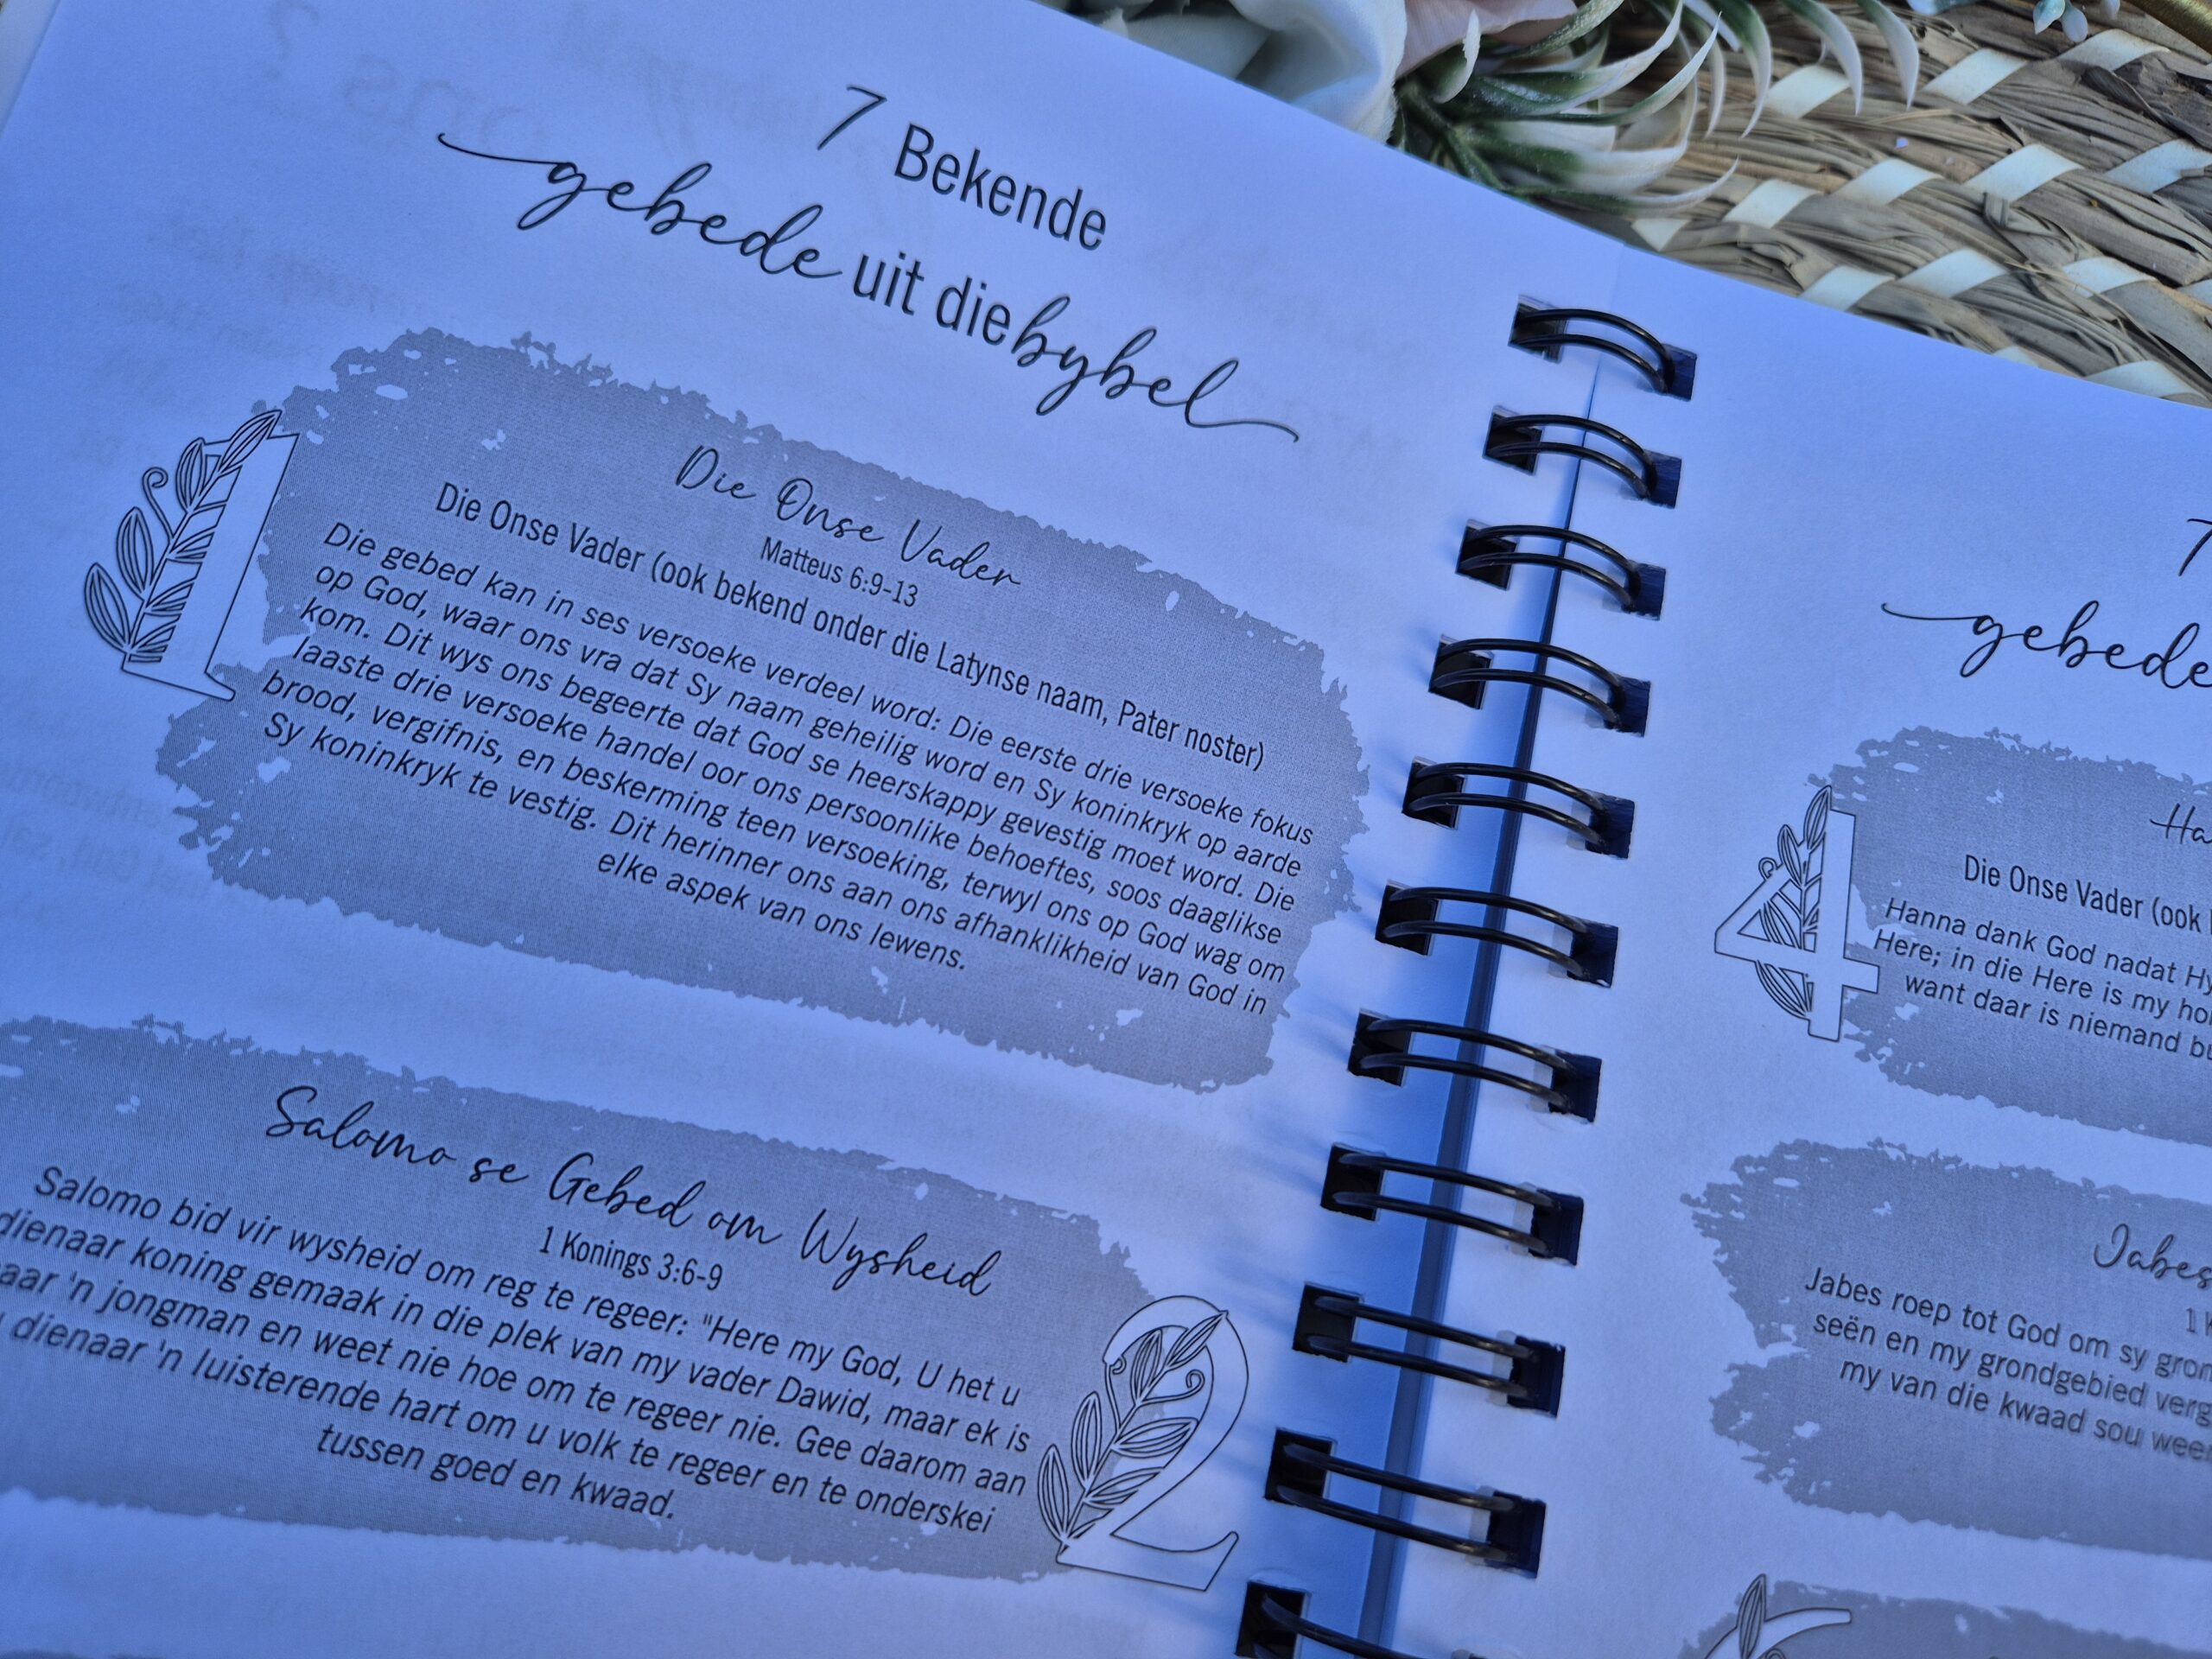 7 Bekende
gebede uit die bybel
1
Die Onse Vader
Matteus 6:9-13
Die Onse Vader (ook bekend onder die Latynse naam, Pater noster)
Die gebed kan in ses versoeke verdeel word: Die eerste drie versoeke fokus
op God, waar ons vra dat Sy naam geheilig word en Sy koninkryk op aarde
kom. Dit wys ons begeerte dat God se heerskappy gevestig moet word. Die
laaste drie versoeke handel oor ons persoonlike behoeftes, soos daaglikse
brood, vergifnis, en beskerming teen versoeking, terwyl ons op God wag om
Sy koninkryk te vestig. Dit herinner ons aan ons afhanklikheid van God in
elke aspek van ons lewens.
Salomo se Gebed om Wysheid
1 Konings 3:6-9
Salomo bid vir wysheid om reg te regeer: "Here my God, U het u
dienaar koning gemaak in die plek van my vader Dawid, maar ek is
'n jongman en weet nie hoe om te regeer nie. Gee daarom aan
dienaar 'n luisterende hart om u volk te regeer en te onderskei
tussen goed en kwaad.
2
7
gebede
4
Die Onse Vader (ook
Hanna dank God nadat
Here; in die Here is my
want daar is niemand
Jabes
1
Jabes roep tot God om sy
seën en my grondgebied
my van die kwaad sou